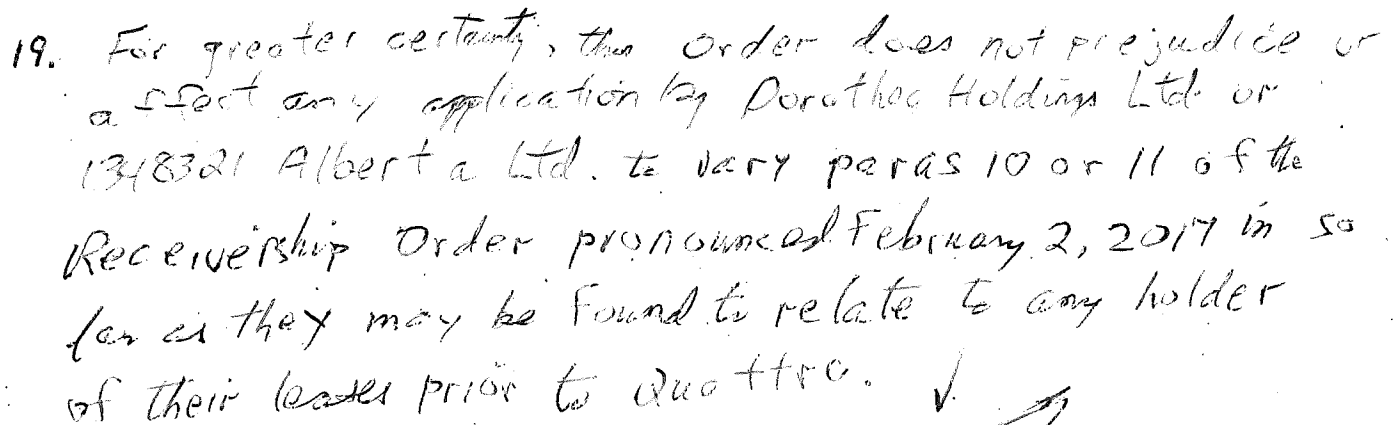 19. For greater certainty, this Order does not prejudice or
affect any application by Dorothea Holdings Ltd. or
1348321 Alberta Ltd. to vary paras 10 or 11 of the
Receivership Order pronounced February 2, 2017 in so
far as they may be found to relate to any holder
of their leases prior to Quattro.